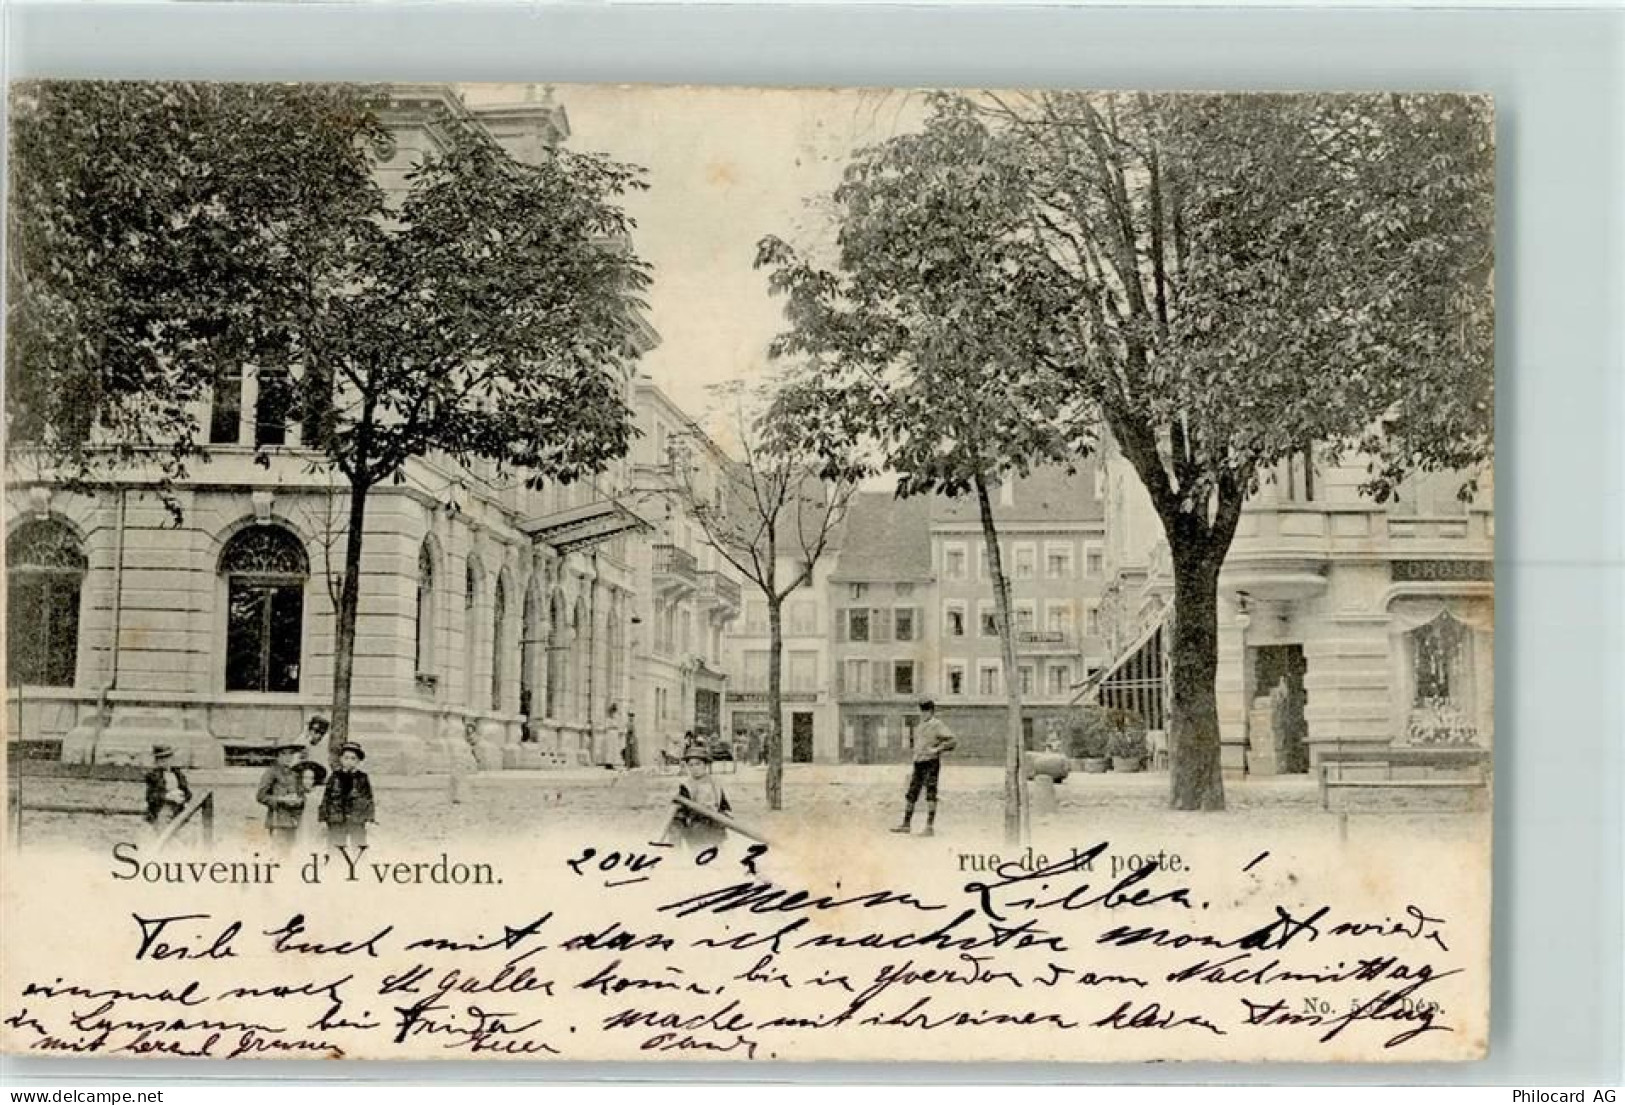 GROSC
Souvenir d'Yverdon.
rue de la poste.
20 IV 02
Meine Lieben!
Teile Euch mit, dass ich nächsten Monat wieder
einmal nach St Gallen komme, bin in Yverdon & am Nachmittag
in bei Frieda. mache mit ihr einen kleinen Ausflug
No. Dép.
mit herzl Grüssen Euer
delcampe.net
Philocard AG